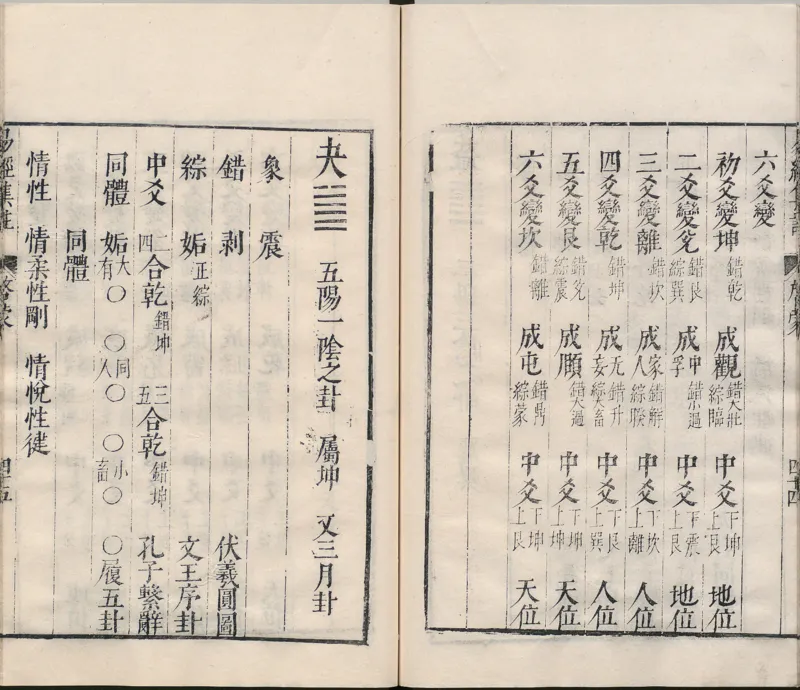 六爻變
初爻變坤 錯乾 成觀 錯大壯 綜臨 中爻 下坤 上艮 地位
二爻變兌 錯艮 綜巽 成中孚 錯小過 中爻 下震 上艮 地位
三爻變離 錯坎 成家人 錯解 綜睽 中爻 下坎 上離 人位
四爻變乾 錯坤 成无妄 錯升 綜大畜 中爻 下艮 上巽 人位
五爻變艮 錯兌 綜震 成頤 錯大過 中爻 下坤 上坤 天位
六爻變坎 錯離 成屯 錯鼎 綜蒙 中爻 下坤 上艮 天位
夬 ䷪ 五陽一陰之卦 屬坤 又三月卦
象 震
錯 剝 伏羲圓圖
綜 姤 正綜 文王序卦
中爻 二四合乾 錯坤 三五合乾 錯坤 孔子繫辭
同體 姤 大有○ ○同人○ ○小畜○ ○履五卦
同體
情性 情柔性剛 情悅性健
易經集註 啓蒙 四十五